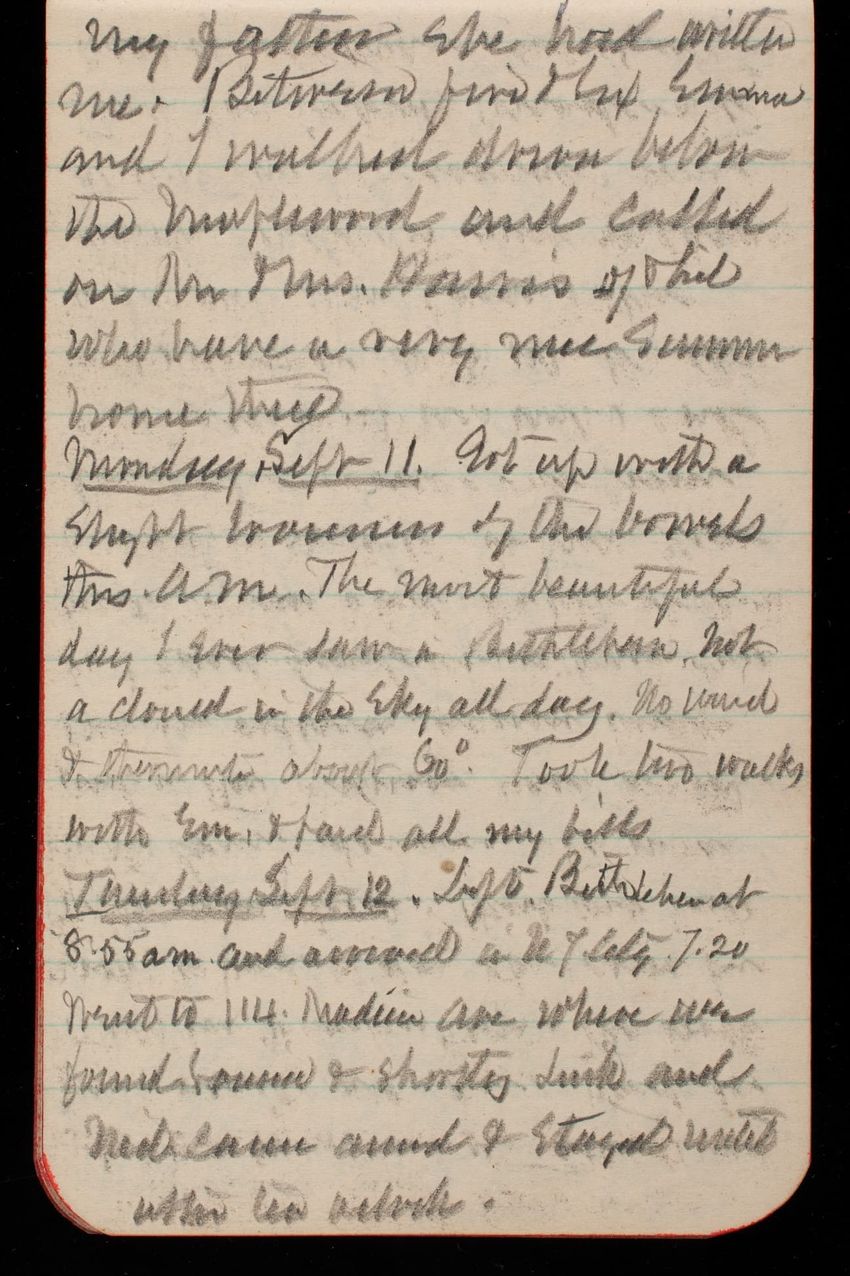 my father She had written
me. Between five & six Emma
and I walked down below
the Maplewood and called
on Mr & Mrs. Harris of Phil
who have a very nice Summer
home there
Monday Sept 11. Got up with a
Slight looseness of the bowels
this A.M. The most beautiful
day I ever saw in Bethlehem. Not
a cloud in the Sky all day. No wind
& thermometer about 60°. Took two walks
with Em, & paid all my bills
Tuesday Sept. 12. Left Bethlehem at
8.55 am. and arrived in N Y City 7.20
Went to 114. Madison Ave where we
found & Shortly Dick and
Ned came around & Stayed until
after ten oclock.